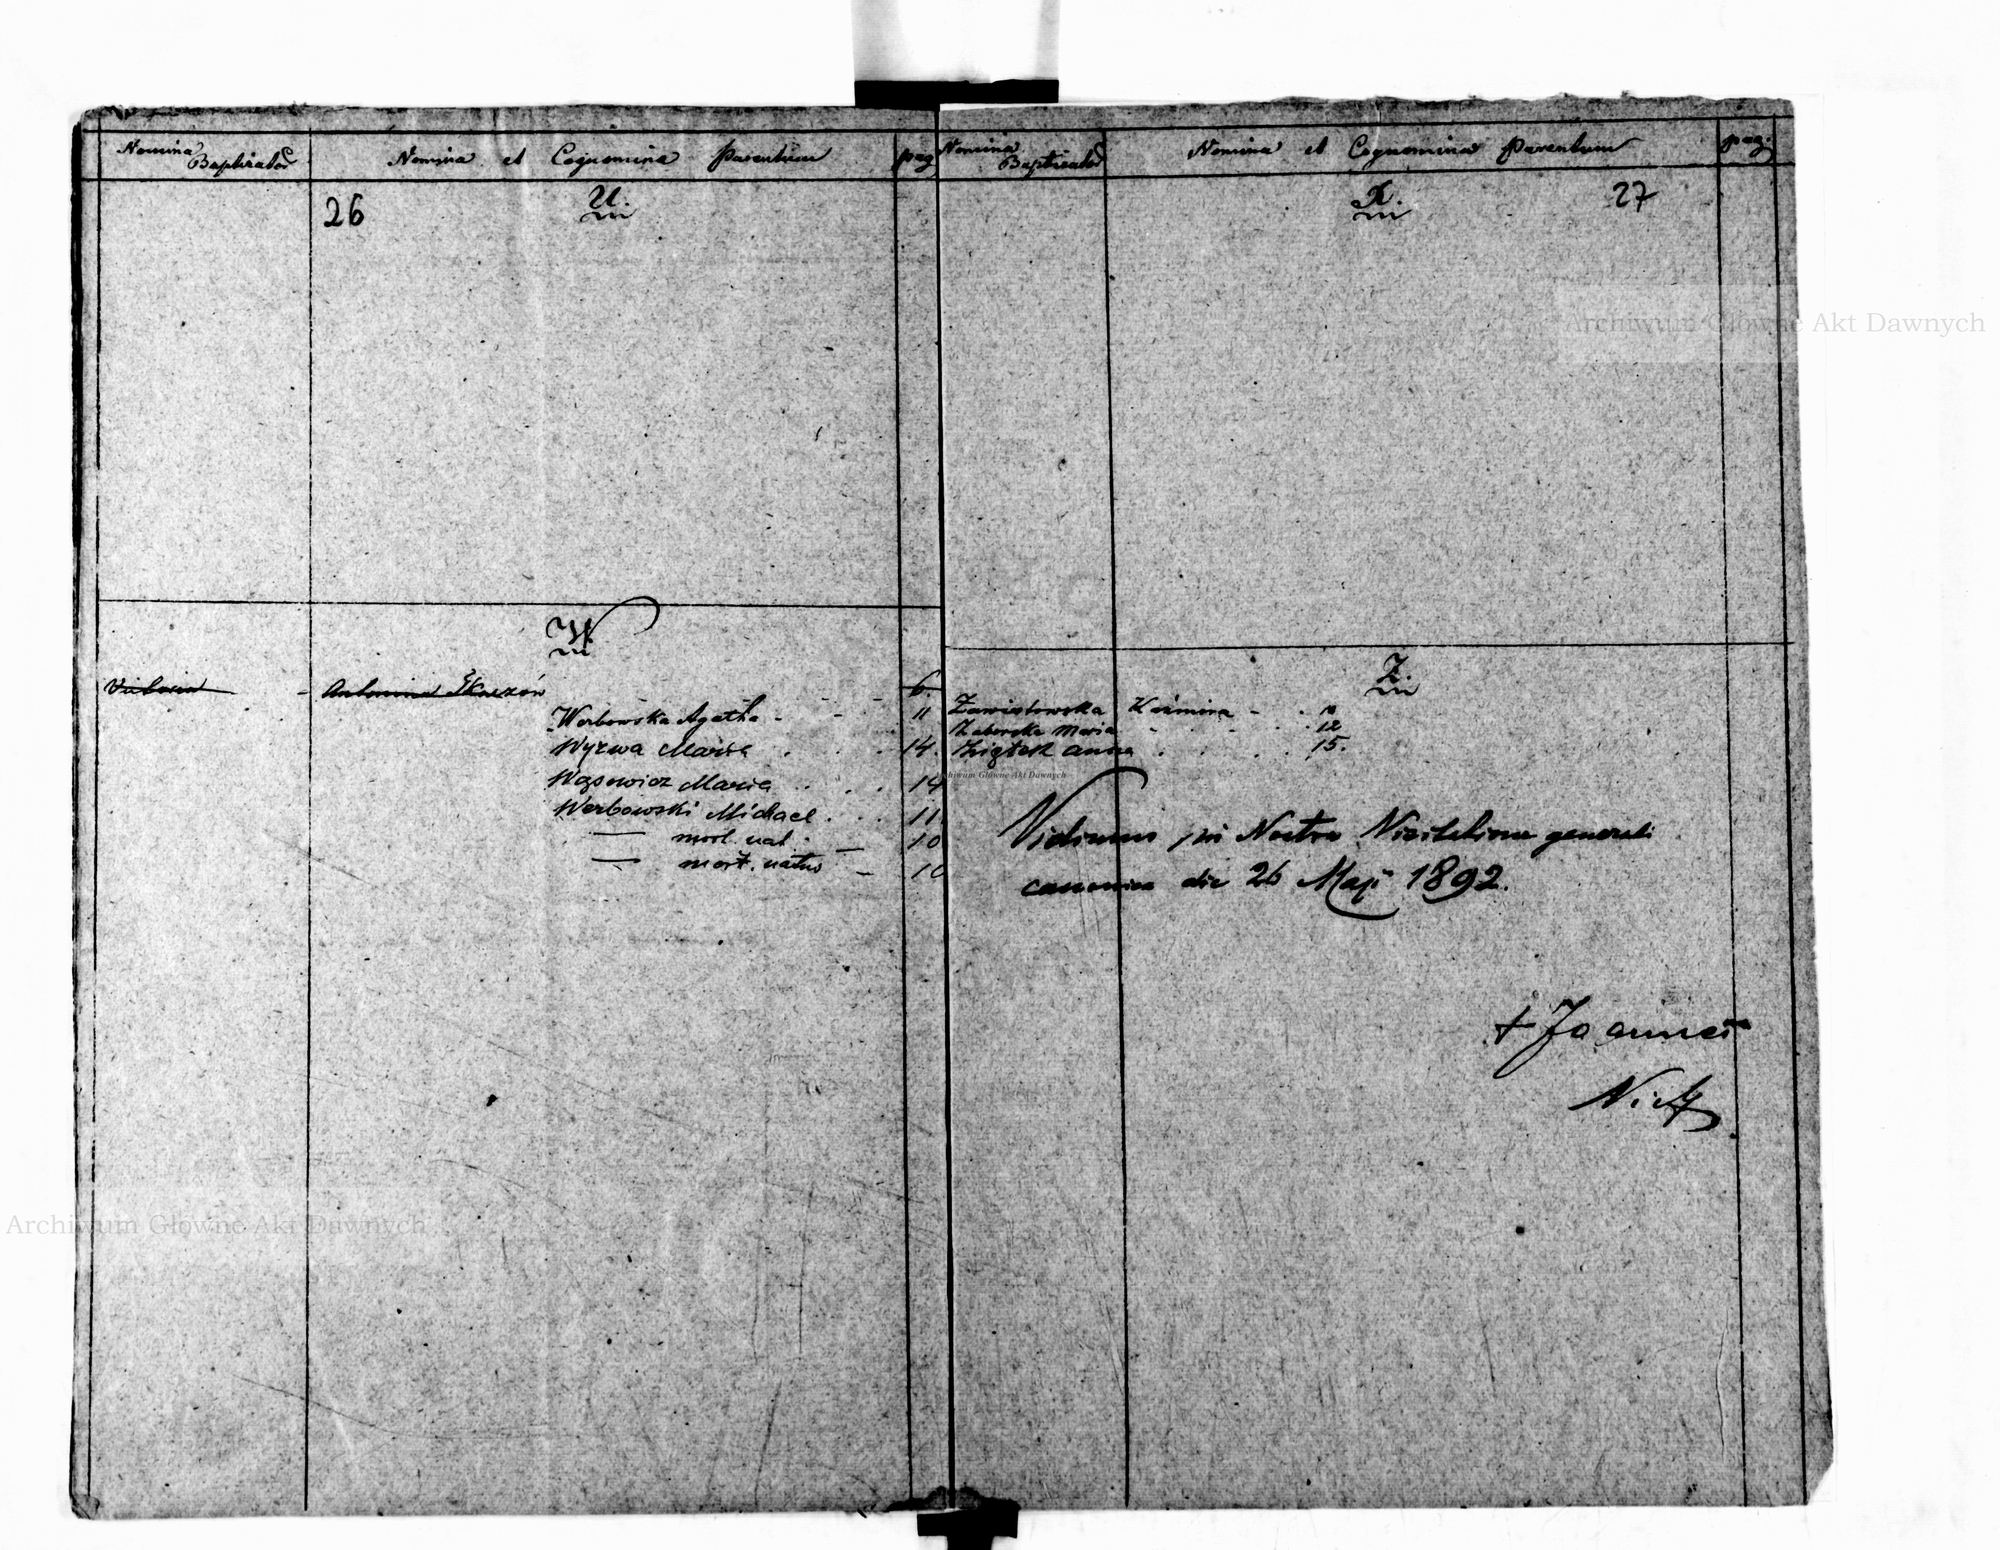 Nomina Baptisator
Nomina et Cognomina Parentum
pag
26
U.
W
Antonina 6.
Werbowska Agatha - - 11
Wyrwa Maria . . . 14.
Wąsowicz Maria . . . 14
Werbowski Michael . . . 11
— mort. nat. — 10
— mort. natus — 10
Nomina Baptisator
Nomina et Cognomina Parentum
pag.
X.
27
Z.
Zawistowska Kaźmira - . .
Zaborska Maria . . . 12
Ziętek Anna . . . 15.
Vidimus in Nostra Visitatione generali
canonica die 26 Maji 1892.
+ Joannes
Archiwum Główne Akt Dawnych
Archiwum Główne Akt Dawnych
Archiwum Główne Akt Dawnych